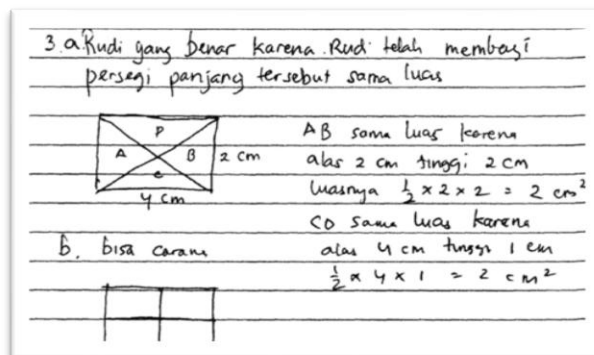 3.a. Rudi yang benar karena Rudi telah membagi
persegi panjang tersebut sama luas
D
A B 2 cm
C
4 cm
AB sama luas karena
alas 2 cm tinggi 2 cm
luasnya ½ x 2 x 2 = 2 cm²
CD sama luas karena
alas 4 cm tinggi 1 cm
½ x 4 x 1 = 2 cm²
b. bisa caranya